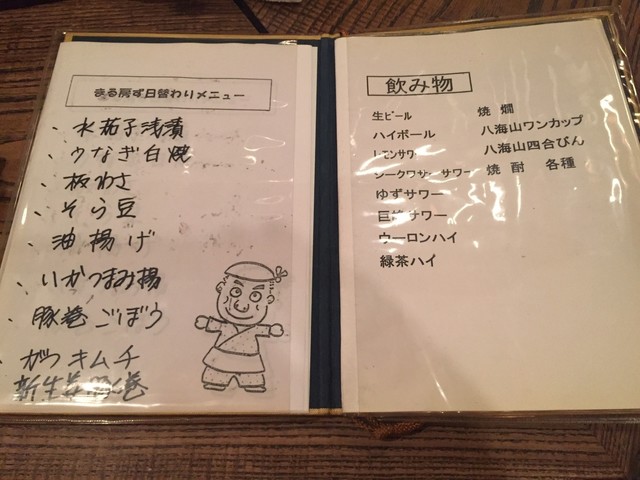 まる房ず日替わりメニュー
・水茄子浅漬
・うなぎ白焼
・板わさ
・そら豆
・油揚げ
・いかつまみ揚
・豚巻ごぼう
・がつキムチ
飲み物
生ビール
ハイボール
レモンサワー
シークワサーサワー
ゆずサワー
巨峰サワー
ウーロンハイ
緑茶ハイ
焼燗
八海山ワンカップ
八海山四合びん
焼酎 各種